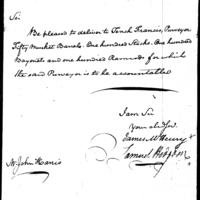 Sir
Be pleased to deliver to Tench Francis, Purveyor
Fifty Musket Barrels. One hundred Stocks. One hundred
Bayonets and one hundred Ramrods for which
the said Purveyor is to be accountable
I am Sir
your ob Ser
James McHenry
Samuel Hodgdon
Mr John Harris